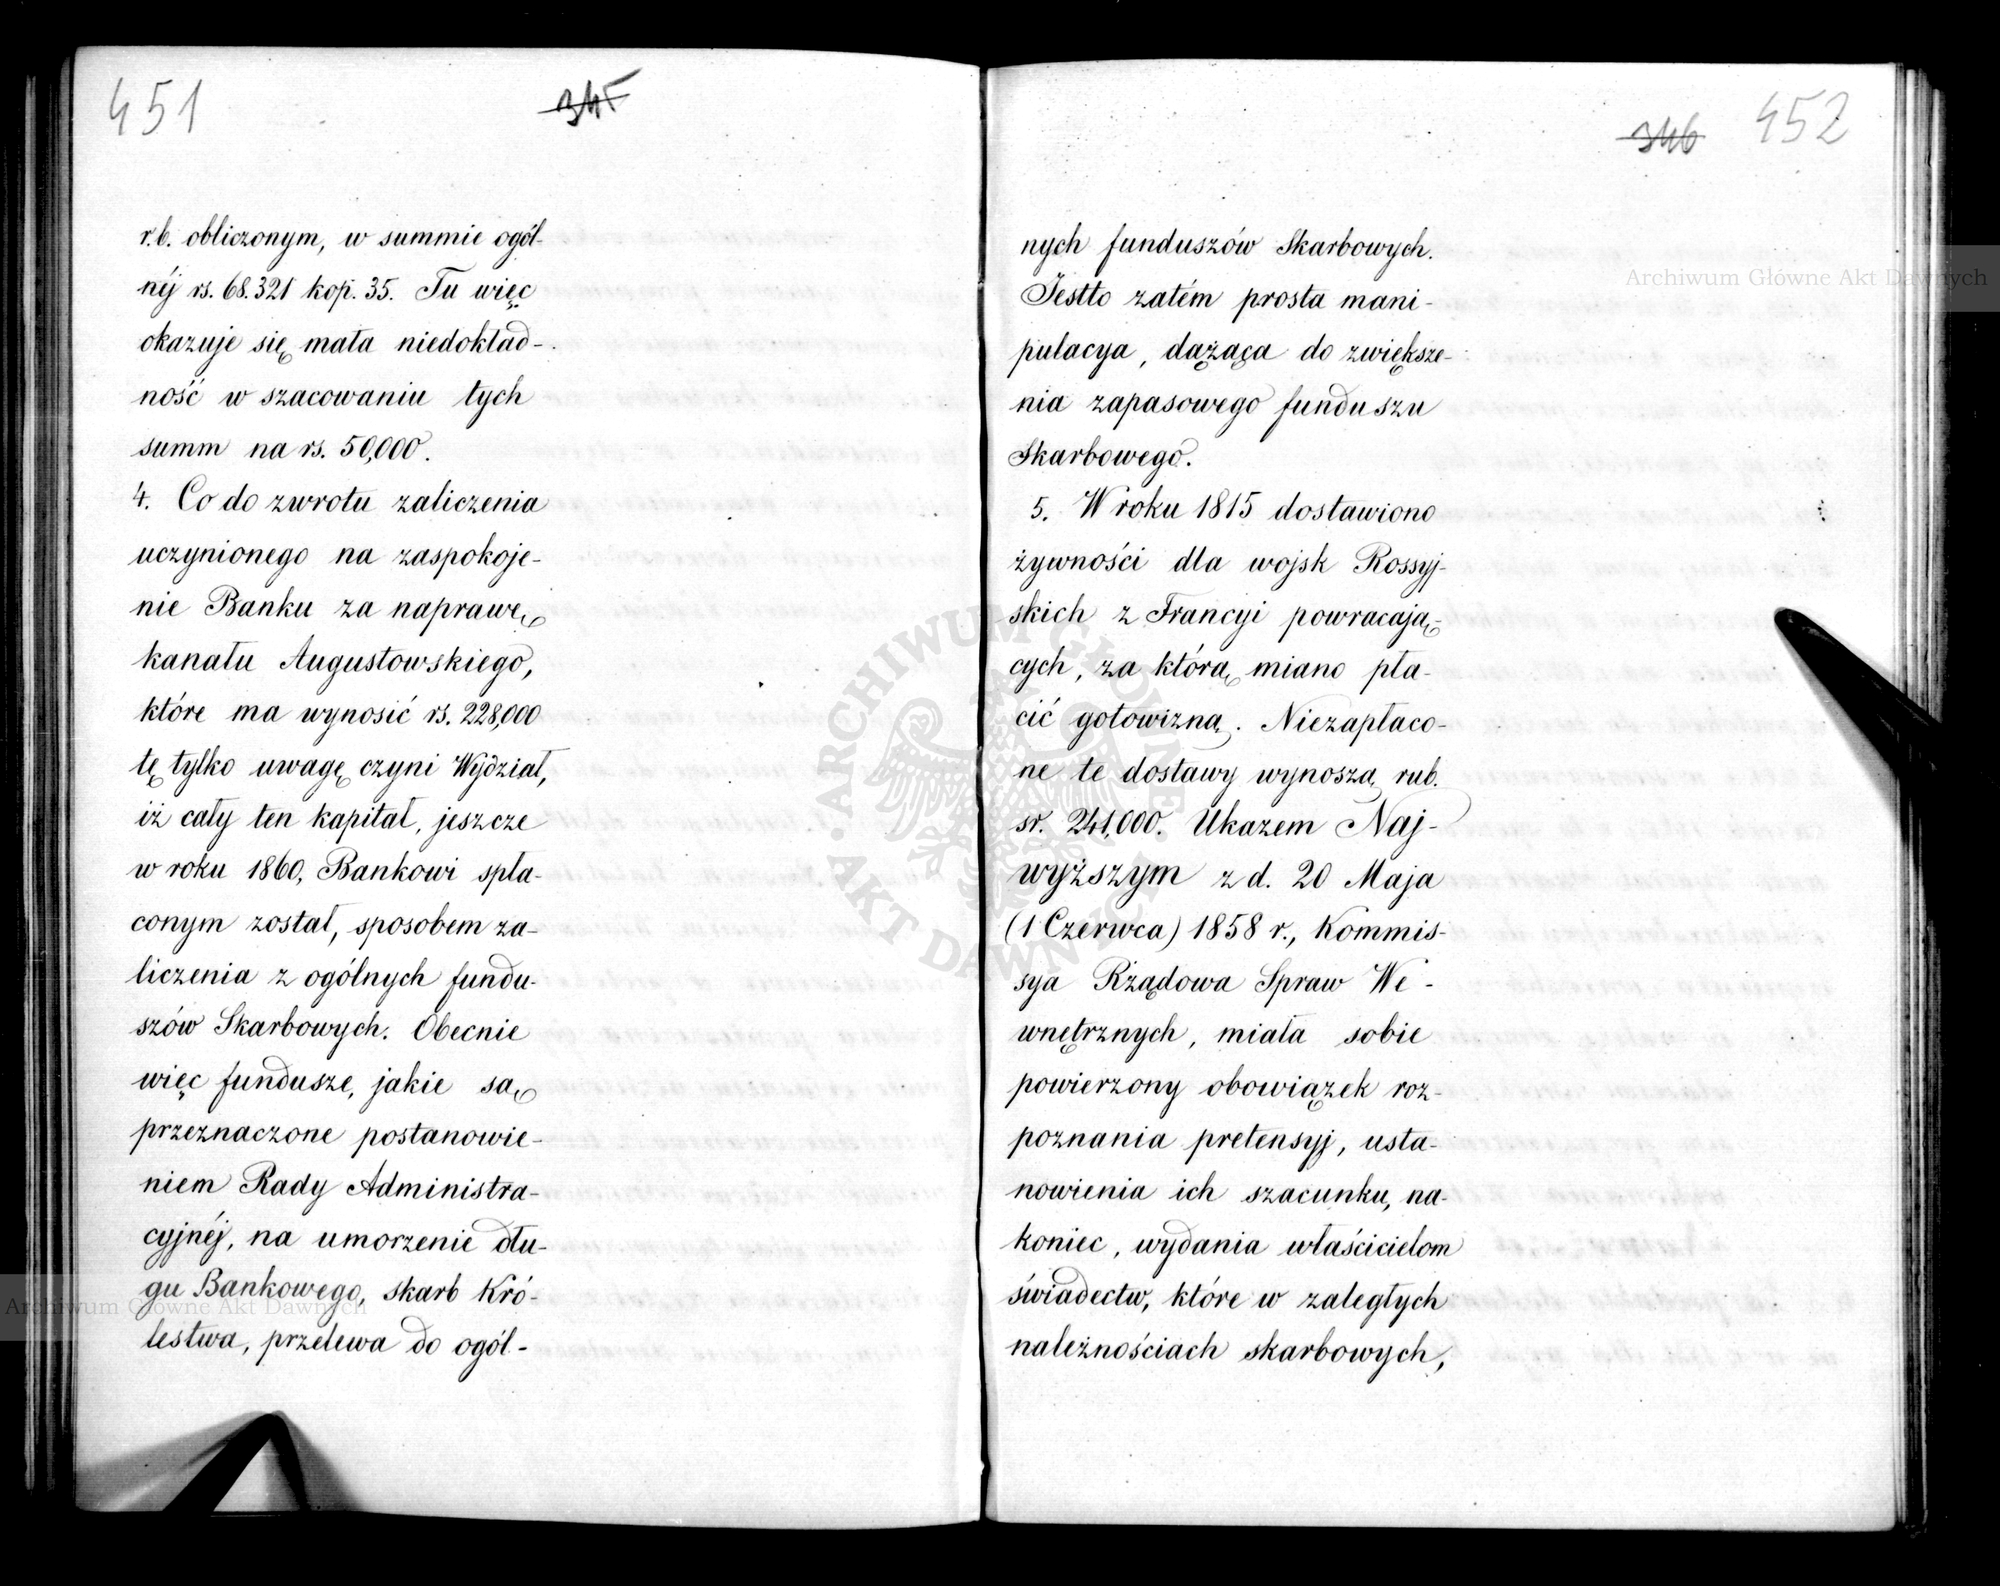 451
345
r.b. obliczonym, w summie ogól-
néj rs. 68.321 kop. 35. Tu więc
okazuje się mała niedokład-
ność w szacowaniu tych
summ na rs. 50,000.
4. Co do zwrotu zaliczenia
uczynionego na zaspokoje-
nie Banku za naprawę
kanału Augustowskiego,
które ma wynosić rs. 228,000
tę tylko uwagę czyni Wydział,
iż cały ten kapitał, jeszcze
w roku 1860, Bankowi spła-
conym został, sposobem za-
liczenia z ogólnych fundu-
szów Skarbowych. Obecnie
więc fundusze, jakie są
przeznaczone postanowie-
niem Rady Administra-
cyjnéj, na umorzenie dłu-
gu Bankowego, skarb Kró-
lestwa, przelewa do ogól-
346
452
nych funduszów Skarbowych.
Jestto zatém prosta mani-
pulacya, dążąca do zwiększe-
nia zapasowego funduszu
Skarbowego.
5. W roku 1815 dostawiono
żywności dla wojsk Rossyj-
skich z Francyi powracają-
cych, za którą miano pła-
cić gotowizną. Niezapłaco-
ne te dostawy wynoszą rub.
sr. 241,000. Ukazem Naj-
wyższym z d. 20 Maja
(1 Czerwca) 1858 r., Kommis-
sya Rządowa Spraw We-
wnętrznych, miała sobie
powierzony obowiązek roz-
poznania pretensyj, usta-
nowienia ich szacunku, na-
koniec, wydania właścicielom
świadectw, które w zaległych
należnościach skarbowych,
Archiwum Główne Akt Dawnych
Archiwum Główne Akt Dawnych
ARCHIWUM GŁÓWNE AKT DAWNYCH